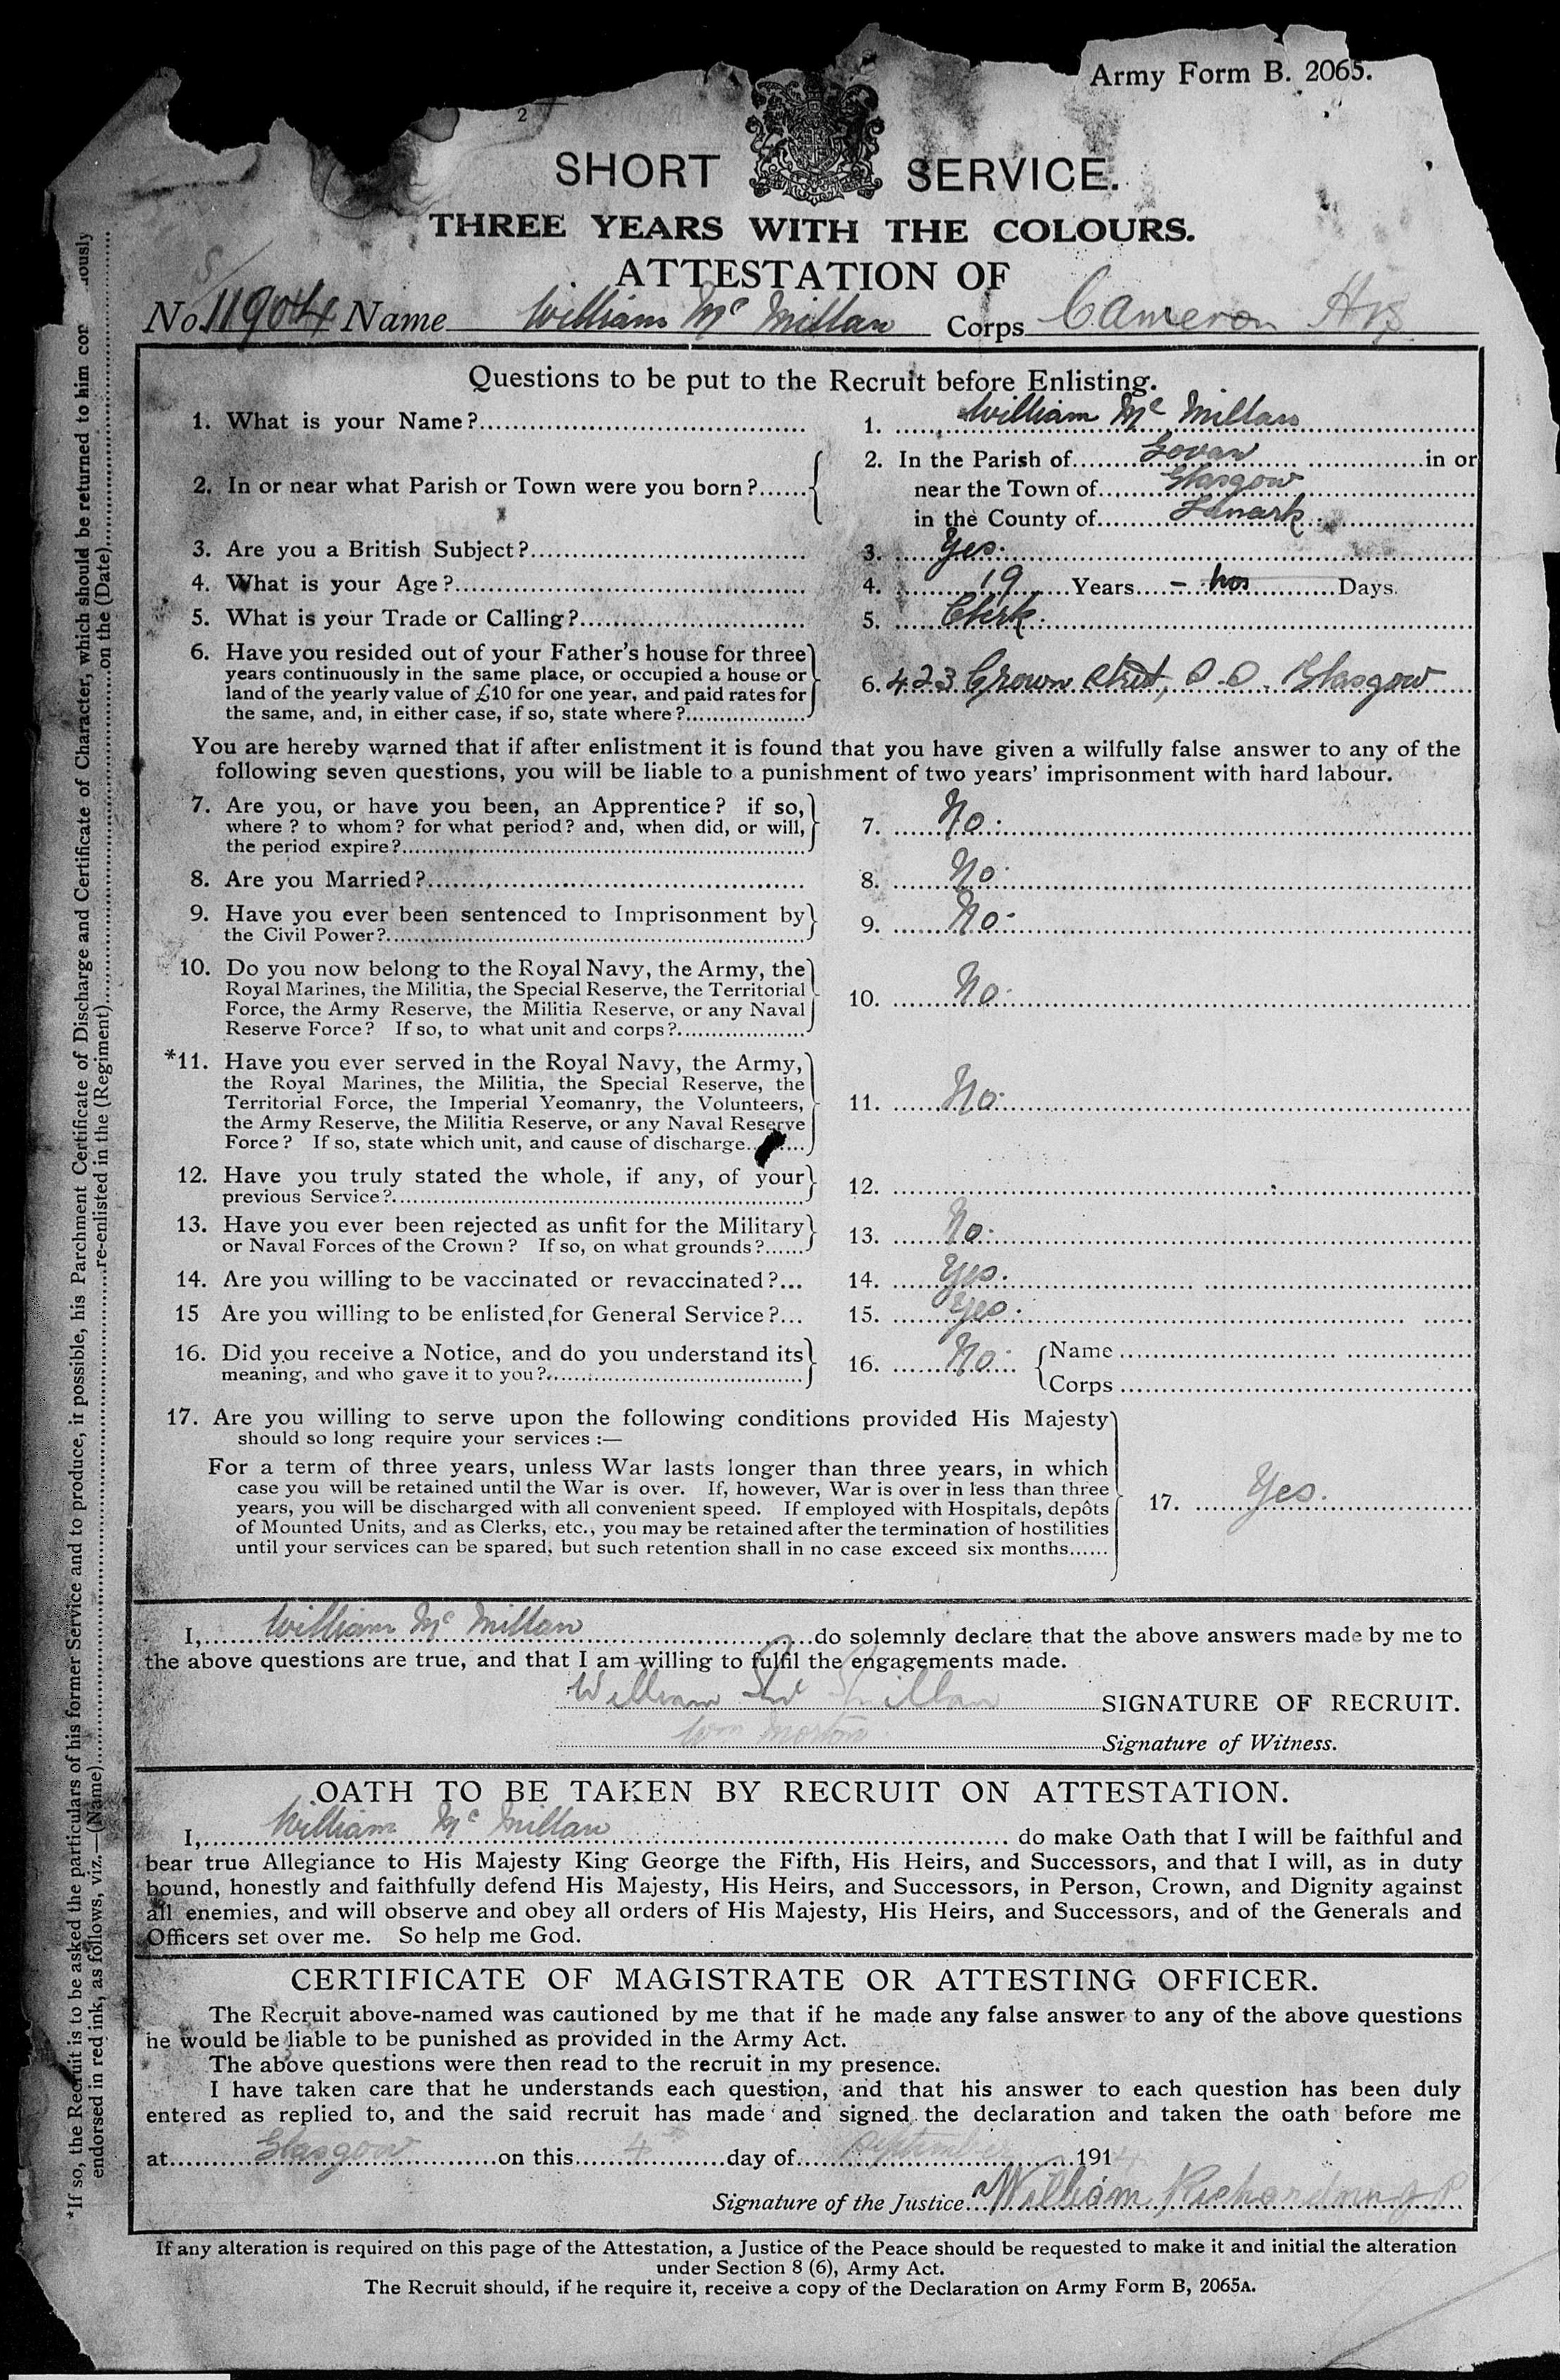 Army Form B. 2065.
2
SHORT SERVICE.
THREE YEARS WITH THE COLOURS.
ATTESTATION OF
S/
No. 11904 Name William Mc Millan Corps Cameron Hrs
Questions to be put to the Recruit before Enlisting.
1. What is your Name? 1. William Mc Millan
2. In or near what Parish or Town were you born? 2. In the Parish of Govan in or
near the Town of Glasgow
in the County of Lanark
3. Are you a British Subject? 3. Yes.
4. What is your Age? 4. 19 Years - hos Days.
5. What is your Trade or Calling? 5. Clerk.
6. Have you resided out of your Father's house for three
years continuously in the same place, or occupied a house or
land of the yearly value of £10 for one year, and paid rates for
the same, and, in either case, if so, state where? 6. 423 Crown Street, S.S. Glasgow
You are hereby warned that if after enlistment it is found that you have given a wilfully false answer to any of the
following seven questions, you will be liable to a punishment of two years' imprisonment with hard labour.
7. Are you, or have you been, an Apprentice? if so,
where? to whom? for what period? and, when did, or will,
the period expire? 7. No.
8. Are you Married? 8. No.
9. Have you ever been sentenced to Imprisonment by
the Civil Power? 9. No.
10. Do you now belong to the Royal Navy, the Army, the
Royal Marines, the Militia, the Special Reserve, the Territorial
Force, the Army Reserve, the Militia Reserve, or any Naval
Reserve Force? If so, to what unit and corps? 10. No.
*11. Have you ever served in the Royal Navy, the Army,
the Royal Marines, the Militia, the Special Reserve, the
Territorial Force, the Imperial Yeomanry, the Volunteers,
the Army Reserve, the Militia Reserve, or any Naval Reserve
Force? If so, state which unit, and cause of discharge 11. No.
12. Have you truly stated the whole, if any, of your
previous Service? 12.
13. Have you ever been rejected as unfit for the Military
or Naval Forces of the Crown? If so, on what grounds? 13. No.
14. Are you willing to be vaccinated or revaccinated? 14. Yes.
15 Are you willing to be enlisted for General Service? 15. Yes.
16. Did you receive a Notice, and do you understand its
meaning, and who gave it to you? 16. No. Name
Corps
17. Are you willing to serve upon the following conditions provided His Majesty
should so long require your services :—
For a term of three years, unless War lasts longer than three years, in which
case you will be retained until the War is over. If, however, War is over in less than three
years, you will be discharged with all convenient speed. If employed with Hospitals, depôts
of Mounted Units, and as Clerks, etc., you may be retained after the termination of hostilities
until your services can be spared, but such retention shall in no case exceed six months 17. Yes.
I, William Mc Millan do solemnly declare that the above answers made by me to
the above questions are true, and that I am willing to fulfil the engagements made.
William Mc Millan SIGNATURE OF RECRUIT.
Wm Morton Signature of Witness.
OATH TO BE TAKEN BY RECRUIT ON ATTESTATION.
I, William Mc Millan do make Oath that I will be faithful and
bear true Allegiance to His Majesty King George the Fifth, His Heirs, and Successors, and that I will, as in duty
bound, honestly and faithfully defend His Majesty, His Heirs, and Successors, in Person, Crown, and Dignity against
all enemies, and will observe and obey all orders of His Majesty, His Heirs, and Successors, and of the Generals and
Officers set over me. So help me God.
CERTIFICATE OF MAGISTRATE OR ATTESTING OFFICER.
The Recruit above-named was cautioned by me that if he made any false answer to any of the above questions
he would be liable to be punished as provided in the Army Act.
The above questions were then read to the recruit in my presence.
I have taken care that he understands each question, and that his answer to each question has been duly
entered as replied to, and the said recruit has made and signed the declaration and taken the oath before me
at Glasgow on this 4th day of September 1914
Signature of the Justice William Richardson JP
If any alteration is required on this page of the Attestation, a Justice of the Peace should be requested to make it and initial the alteration
under Section 8 (6), Army Act.
The Recruit should, if he require it, receive a copy of the Declaration on Army Form B, 2065A.
*If so, the Recruit is to be asked the particulars of his former Service and to produce, if possible, his Parchment Certificate of Discharge and Certificate of Character, which should be returned to him con iously
endorsed in red ink, as follows, viz.—(Name) re-enlisted in the (Regiment) on the (Date)